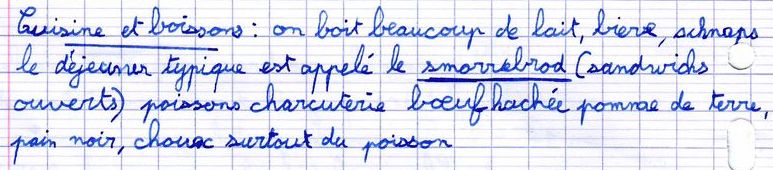 Cuisine et boissons : on boit beaucoup de lait, biere, schnaps
le déjeuner typique est appelé le smorrebrod (sandwichs
ouverts) poissons charcuterie bœuf hachée pomme de terre,
pain noir, choux surtout du poisson